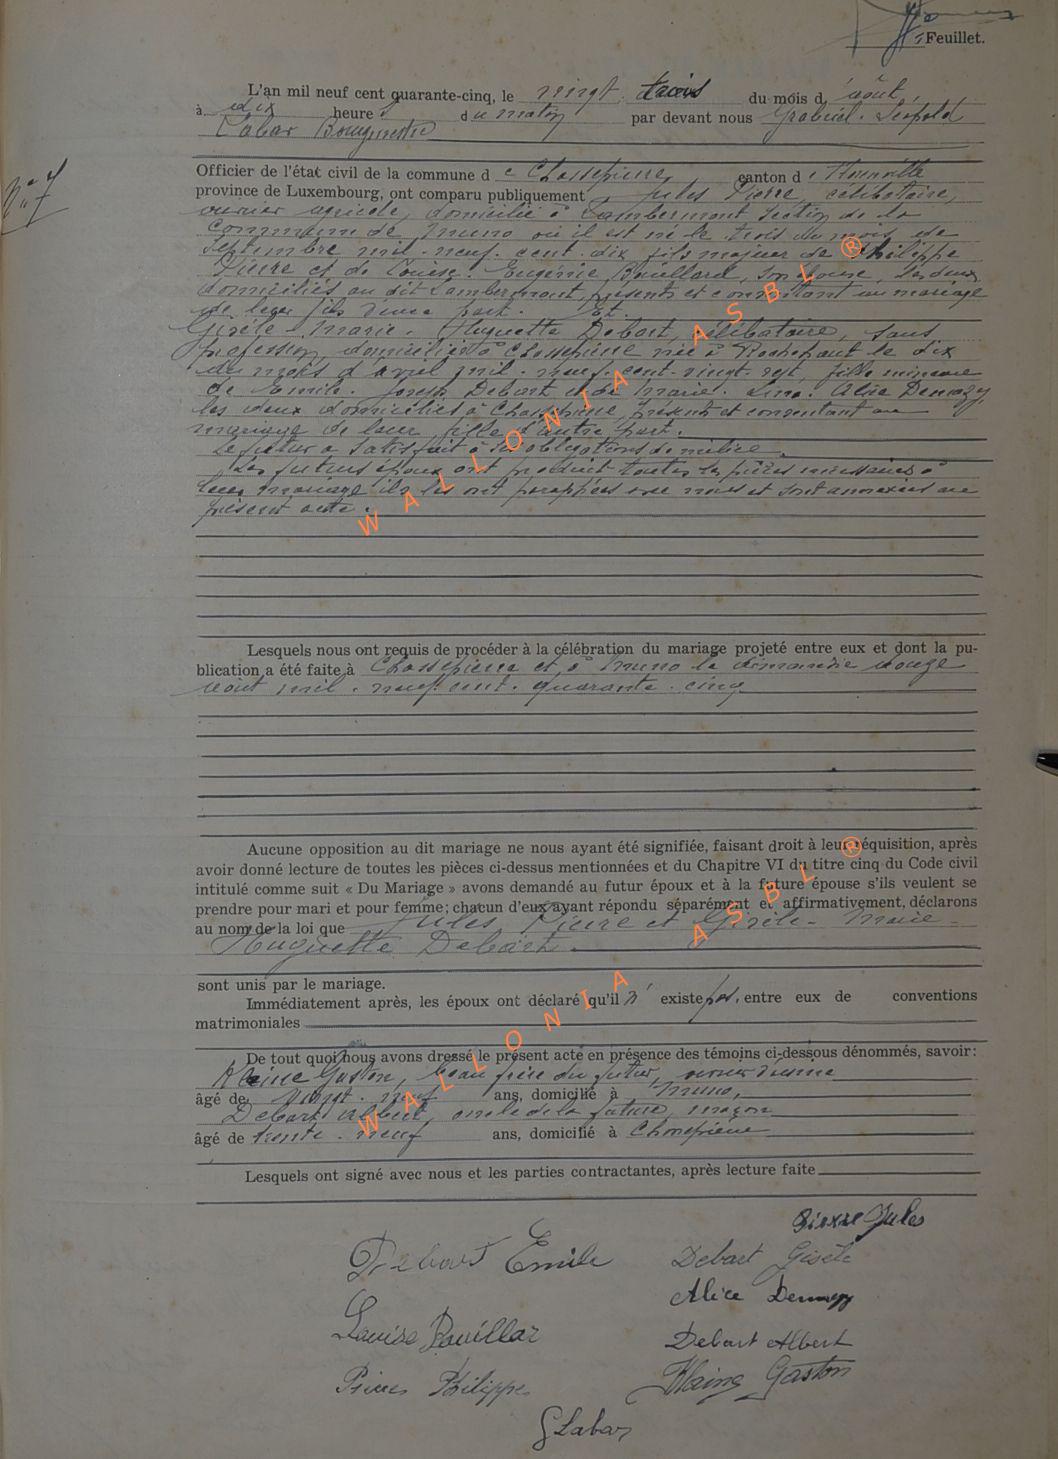 Feuillet.
L'an mil neuf cent quarante-cinq, le vingt trois du mois d'août,
à dix heures du matin par devant nous Gabriel. Léopold
Labar Bourgmestre
N° 7
Officier de l'état civil de la commune de Chassepierre, canton de Florenville
province de Luxembourg, ont comparu publiquement Jules Pierre, célibataire,
ouvrier agricole, domicilié à Lambermont section de la
commune de Muno où il est né le trois du mois de
Septembre mil. neuf. cent. dix fils majeur de Philippe
Pierre et de Louise. Eugénie Bouillard, son épouse, les deux
domiciliés au dit Lambermont, présents et consentant au mariage
de leur fils d'une part. Et.
Gisèle. Marie. Huguette Debart, célibataire, sans
profession, domiciliée à Chassepierre née à Rochehaut le dix
du mois d'avril mil. neuf. cent. vingt. sept, fille mineure
de Emile. Joseph Debart et de Marie. Alice
les deux domiciliés à Chassepierre, présents et consentant au
mariage de leur fille d'autre part.
Le futur a satisfait à ses obligations de milice.
Les futurs époux ont produit toutes les pièces nécessaires à
leur mariage ils les ont paraphées avec nous et sont annexées au
présent acte.
Lesquels nous ont requis de procéder à la célébration du mariage projeté entre eux et dont la pu-
blication a été faite à Chassepierre et à Muno le dimanche douze
août mil. neuf. cent. quarante. cinq
Aucune opposition au dit mariage ne nous ayant été signifiée, faisant droit à leur réquisition, après
avoir donné lecture de toutes les pièces ci-dessus mentionnées et du Chapitre VI du titre cinq du Code civil
intitulé comme suit « Du Mariage » avons demandé au futur époux et à la future épouse s'ils veulent se
prendre pour mari et pour femme; chacun d'eux ayant répondu séparément et affirmativement, déclarons
au nom de la loi que Jules Pierre et Gisèle. Marie.
Huguette Debart.
sont unis par le mariage.
Immédiatement après, les époux ont déclaré qu'il n'existe pas, entre eux de conventions
matrimoniales
De tout quoi nous avons dressé le présent acte en présence des témoins ci-dessous dénommés, savoir:
Gaston, beau frère du futur,
âgé de vingt. neuf ans, domicilié à Muno,
Debart Albert, oncle de la future, maçon
âgé de trente. neuf ans, domicilié à Chassepierre
Lesquels ont signé avec nous et les parties contractantes, après lecture faite
Pierre Jules
Debart Emile Debart Gisèle
Alice
Louise Bouillar Debart Albert
Pierre Philippe Gaston
GLabar
WALLONIA ASBL ®
WALLONIA ASBL ®